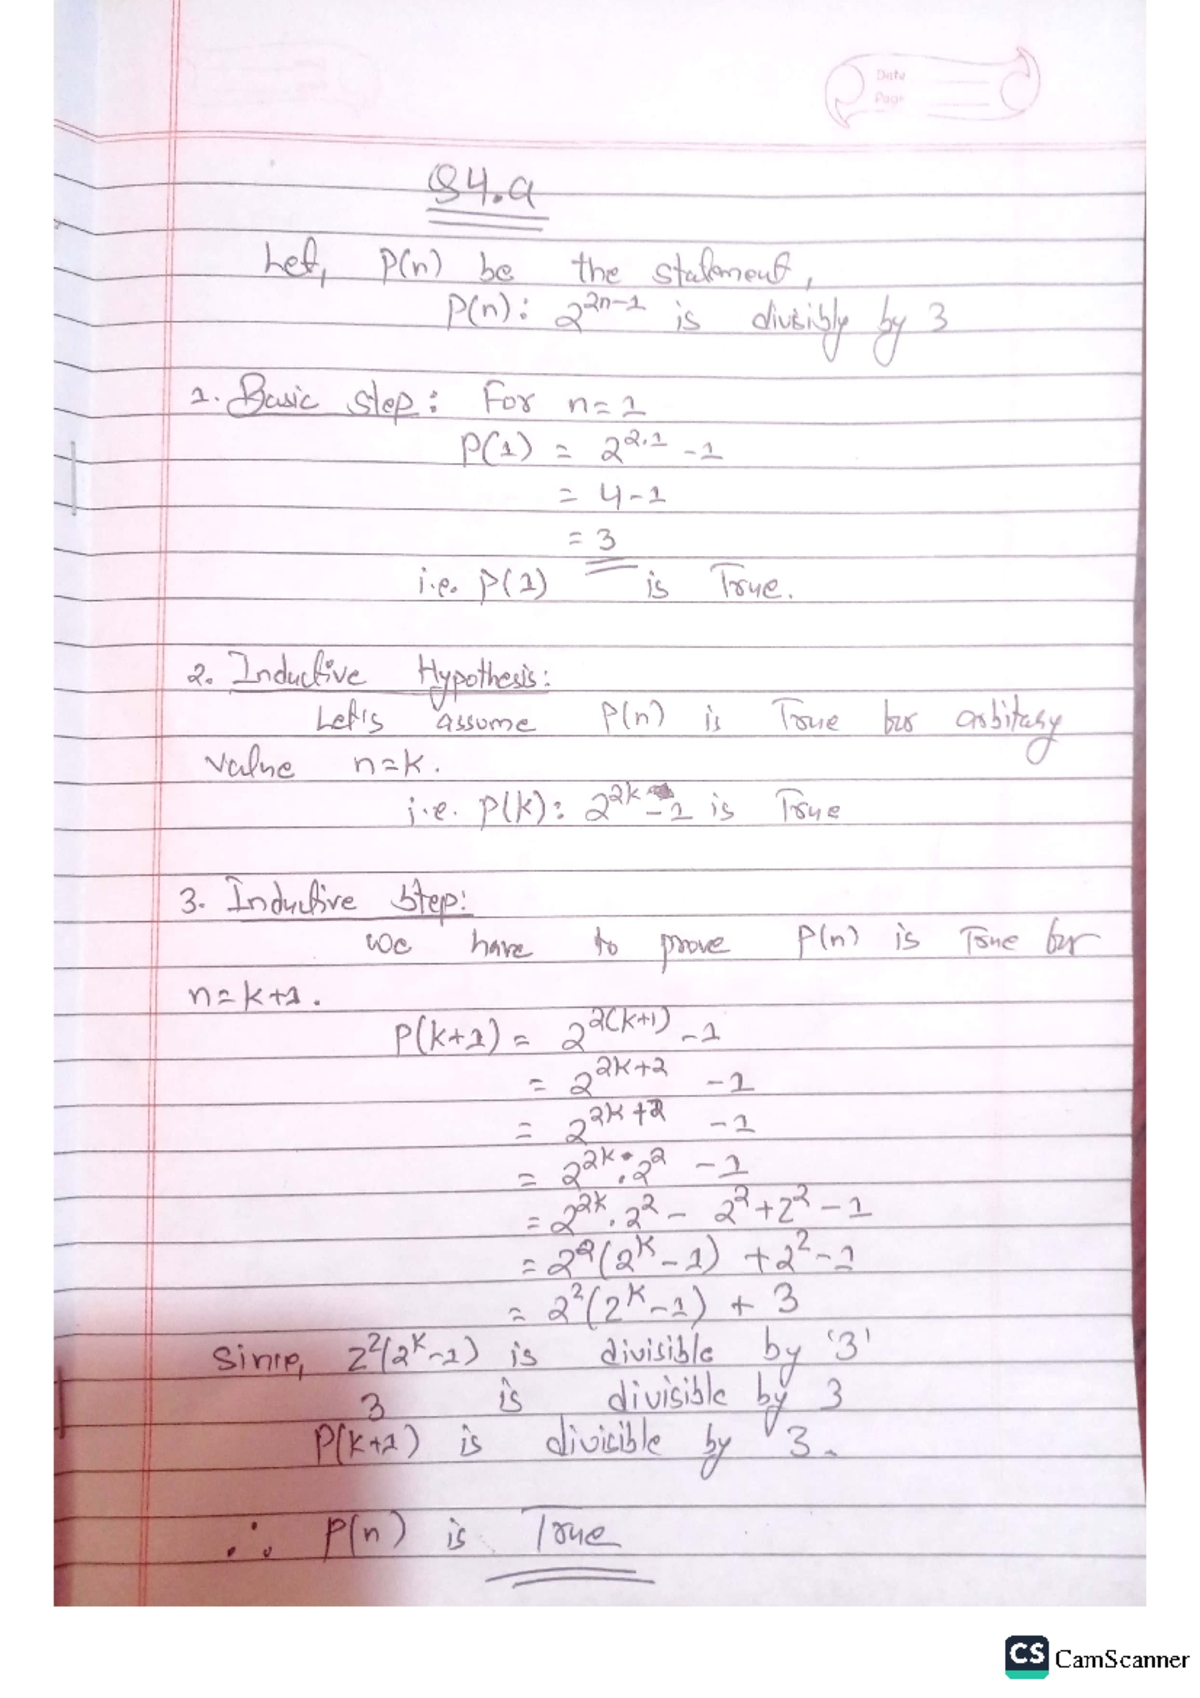 Date
Page
Q4.a
Let, P(n) be the statement,
P(n): 2^2n-1 is divisibly by 3
1. Basic step: For n=1
P(1) = 2^2.1 -1
= 4-1
= 3
i.e. P(1) is True.
2. Inductive Hypothesis:
Let's assume P(n) is True for arbitary
value n=k.
i.e. P(k): 2^2k -1 is True
3. Inductive Step:
we have to prove P(n) is True for
n=k+1.
P(k+1) = 2^2(k+1) -1
= 2^2k+2 -1
= 2^2k+2 -1
= 2^2k . 2^2 -1
= 2^2k . 2^2 - 2^2 + 2^2 -1
= 2^2(2^k -1) + 2^2 -1
= 2^2(2^k -1) + 3
Since, 2^2(2^k -1) is divisible by '3'
3 is divisible by 3
P(k+1) is divicible by 3.
∴ P(n) is True
CS CamScanner